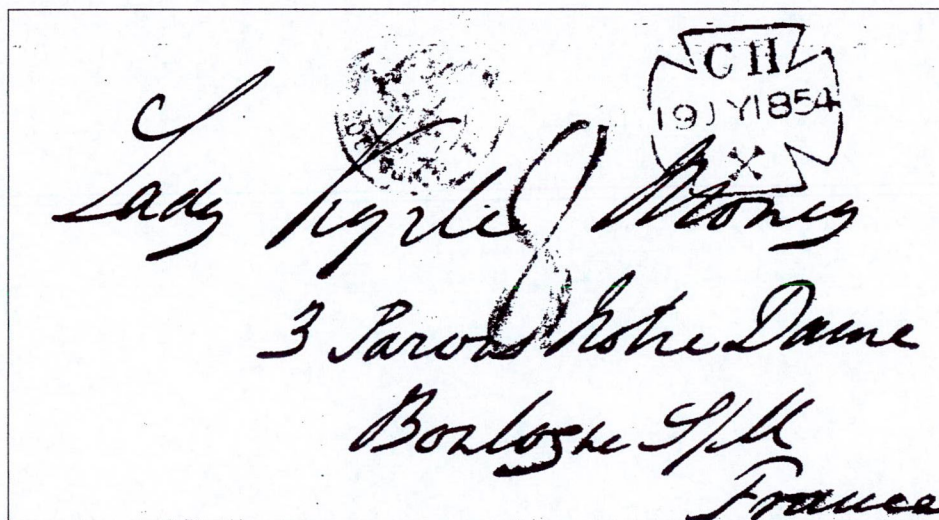 CH
19 JY 1854
X
Lady Kyrle Money
8
3 Parvis Notre Dame
Boulogne S/M
France